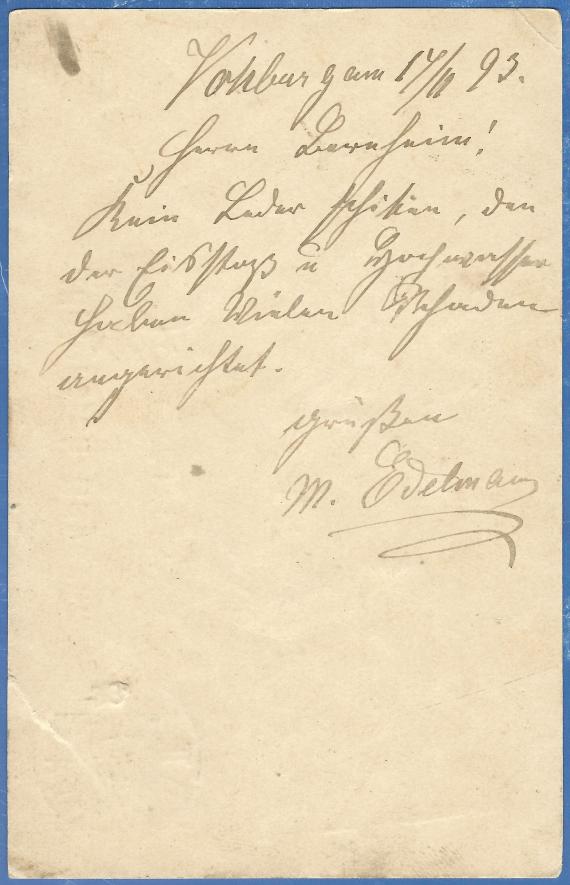 Vohburg am 14/II 93.
Herrn Bernheim!
Kein Leder schiken, den
der Eisstoß u Hochwasser
haben Vielen Schaden
angerichtet.
grüßen
M. Edelmann